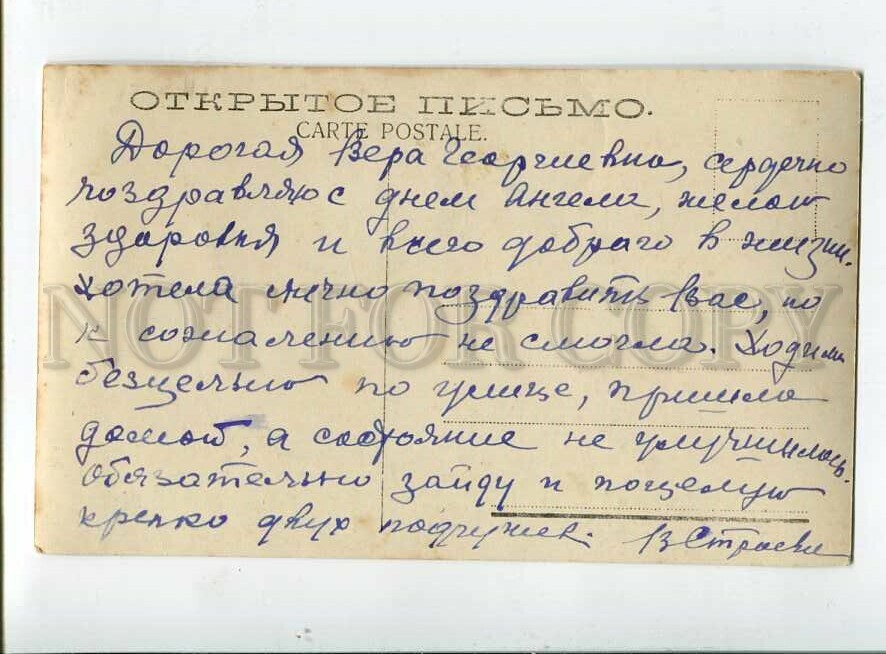 ОТКРЫТОЕ ПИСЬМО.
CARTE POSTALE.
Дорогая Вера Георгиевна, сердечно
поздравляю с днем Ангела, желаю
здоровья и всего доброго в жизни.
Хотела лично поздравить Вас, но
к сожалению не смогла. Ходила
безцельно по улице, пришла
домой, а состояние не улучшилось.
Обязательно зайду и поцелую
крепко двух подружек. В
NOT FOR COPY